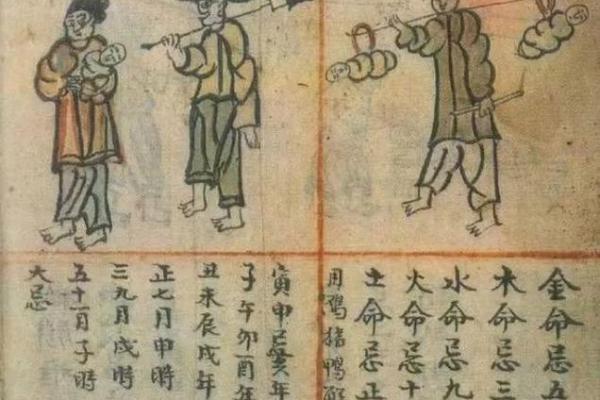 金命忌五
木命忌三
水命忌九
火命忌十
土命忌正
用鸡猪鴨
寅申巳亥年
子午卯酉年
丑未辰戌年
正七月申時
三九月戌時
五十一月子時
大忌